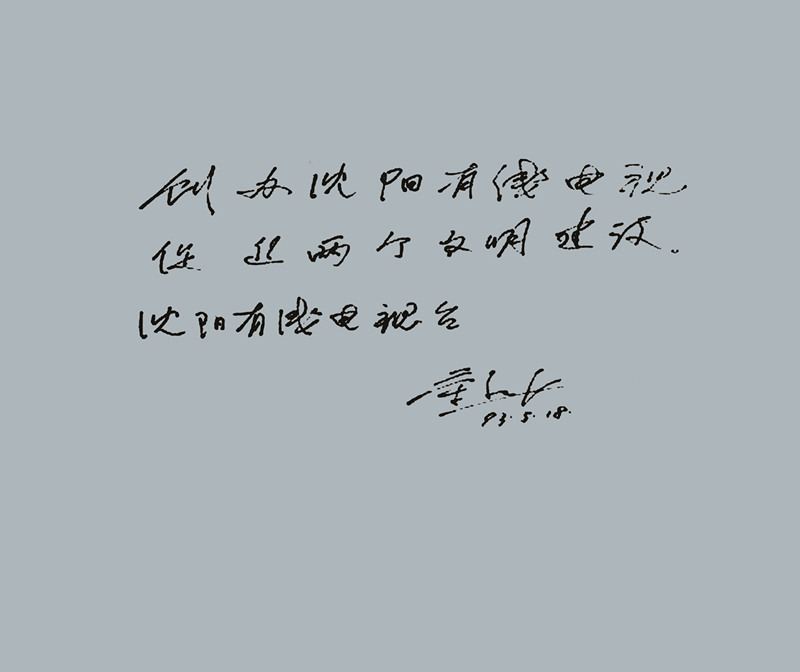 创办沈阳有线电视
促进两个文明建设。
沈阳有线电视台
93.5.18.